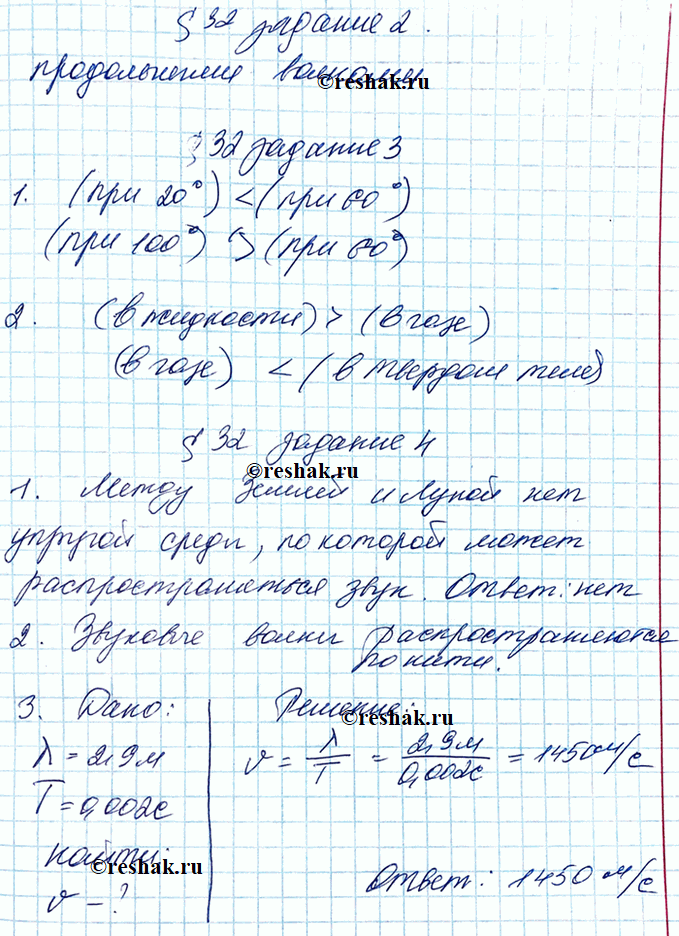 § 32 задание 2.
продольными волнами
©reshak.ru
§ 32 задание 3
1. (при 20°) < (при 60°)
(при 100°) > (при 60°)
2. (в жидкости) > (в газе)
(в газе) < (в твердом теле)
§ 32 задание 4
©reshak.ru
1. Между Землей и Луной нет
упругой среды, по которой может
распространяться звук. Ответ: нет
2. Звуковые волны распространяются
по нити.
3. Дано:
λ = 2,9 м
T = 0,002с
найти:
v - ?
Решение:
©reshak.ru
v = λ/T = 2,9м/0,002с = 1450м/с
©reshak.ru
Ответ: 1450 м/с